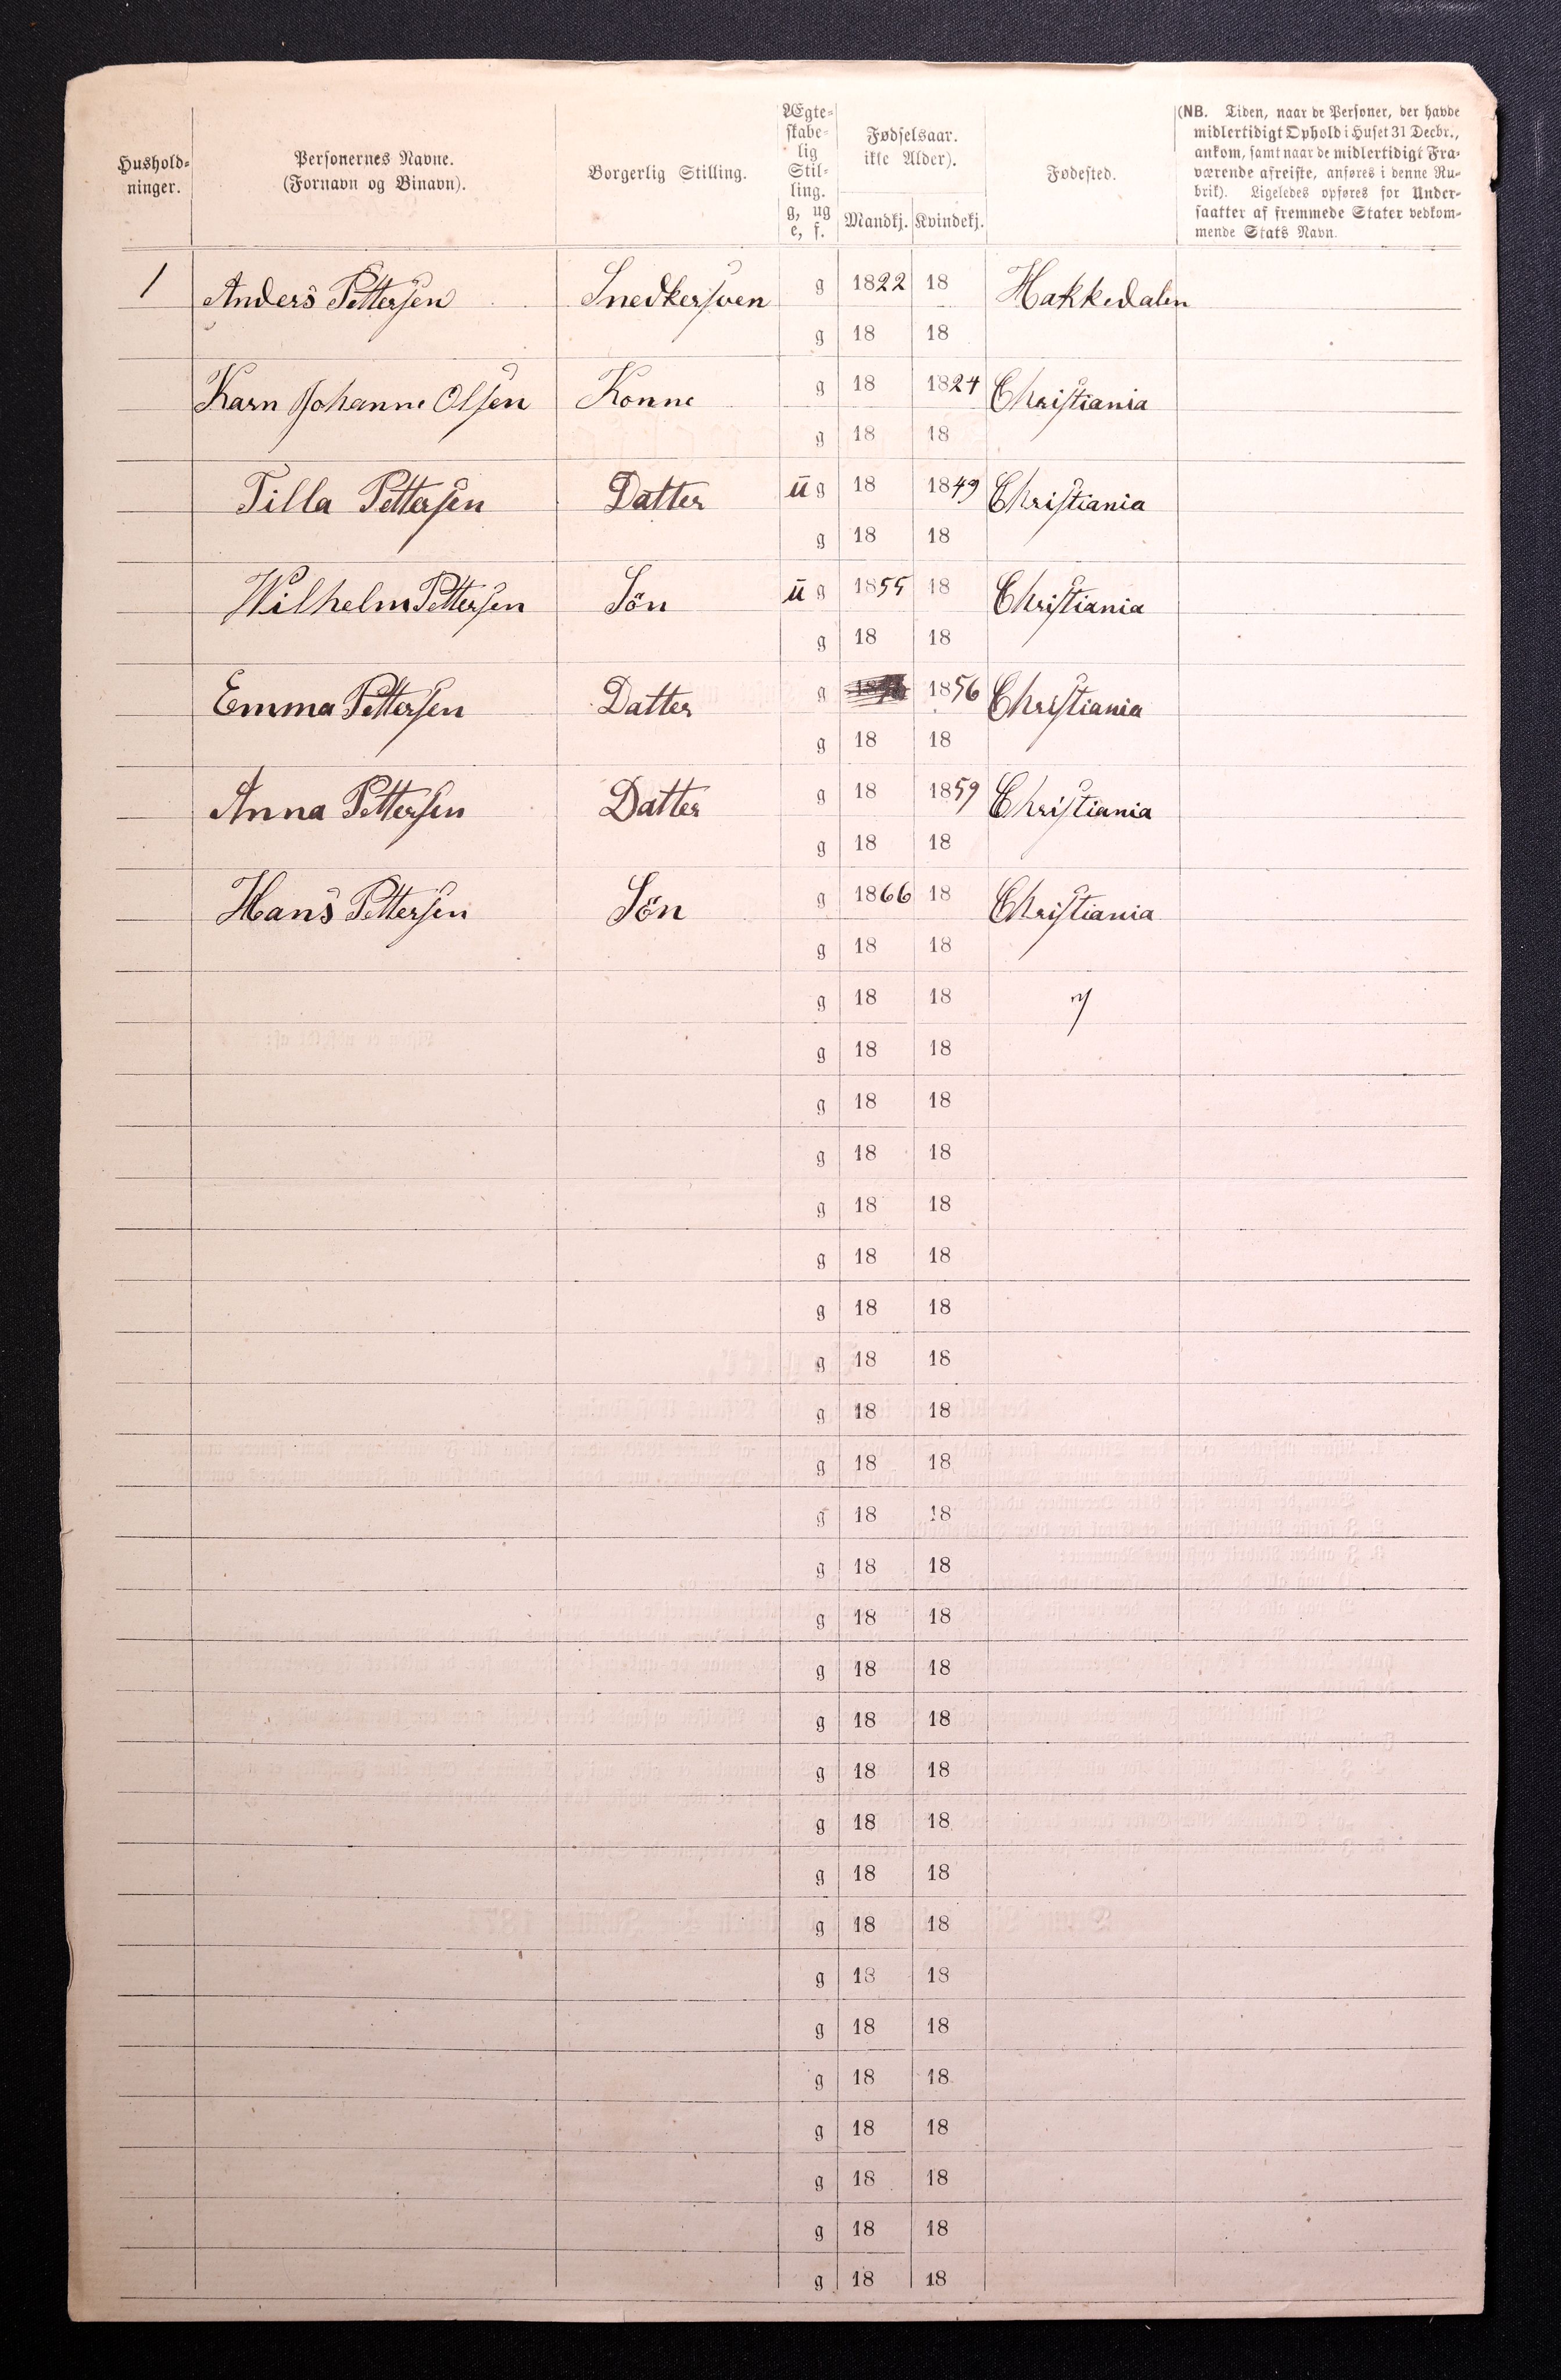 Hushold-
ninger.
Personernes Navne.
(Fornavn og Binavn).
Borgerlig Stilling.
Ægte-
skabe-
lig
Stil-
ling.
g, ug
e, f.
Fødselsaar.
ikke Alder).
Mandkj. Kvindekj.
Fødested.
(NB. Tiden, naar de Personer, der havde
midlertidigt Ophold i Huset 31 Decbr.,
ankom, samt naar de midlertidigt Fra-
værende afreiste, anføres i denne Ru-
brik). Ligeledes opføres for Under-
saatter af fremmede Stater vedkom-
mende Stats Navn.
1 Anders Pettersen Snedkersven g 1822 18 Hakkedalen
g 18 18
Karn Johanne Olsen Konne g 18 1824 Christiania
g 18 18
Tilla Pettersen Datter ug 18 1849 Christiania
g 18 18
Wilhelm Pettersen Sön ug 1855 18 Christiania
g 18 18
Emma Pettersen Datter g 1856 Christiania
g 18 18
Anna Pettersen Datter g 18 1859 Christiania
g 18 18
Hans Pettersen Sön g 1866 18 Christiania
g 18 18
g 18 18
g 18 18
g 18 18
g 18 18
g 18 18
g 18 18
g 18 18
g 18 18
g 18 18
g 18 18
g 18 18
g 18 18
g 18 18
g 18 18
g 18 18
g 18 18
g 18 18
g 18 18
g 18 18
g 18 18
g 18 18
g 18 18
g 18 18
g 18 18
g 18 18
g 18 18